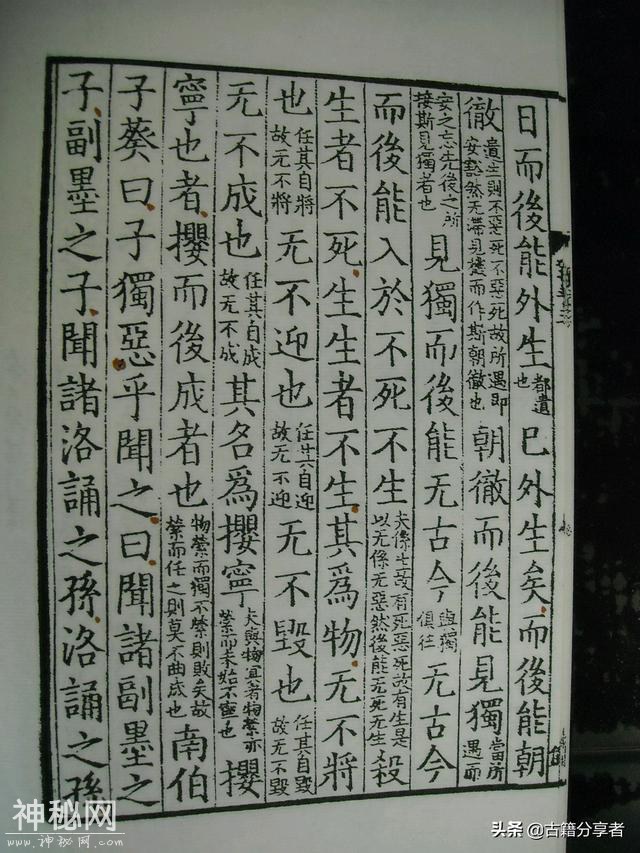 日而後能外生都遺也巳外生矣而後能朝
徹遺生則不惡死不惡死故所遇即安豁然无滯見機而作斯朝徹也朝徹而後能見獨當所遇而
安之忘先後之所接斯見獨者也見獨而後能无古今與獨俱往无古今
而後能入於不死不生夫係生故有死惡死故有生是以无係无惡然後能无死无生殺
生者不死生生者不生其為物无不將
也任其自將故无不將无不迎也任其自迎故无不迎无不毀也任其自毀故无不毀
无不成也任其自成故无不成其名為攖寧夫與物冥者物縈亦縈而未始不寧也攖
寧也者攖而後成者也物縈而獨不縈則敗矣故縈而任之則莫不曲成也南伯
子葵曰子獨惡乎聞之曰聞諸副墨之
子副墨之子聞諸洛誦之孫洛誦之孫
神秘网
www.神秘网.com
头条 @古籍分享者